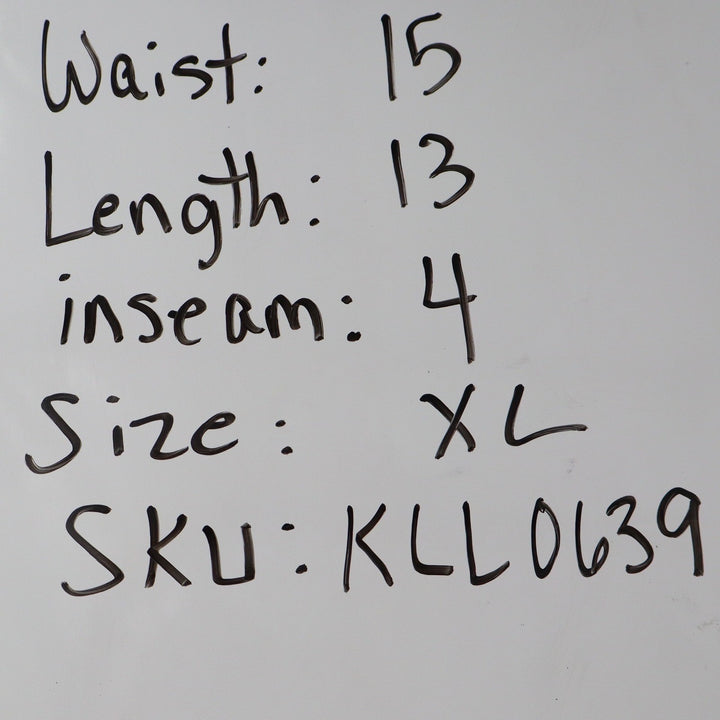 Waist: 15
Length: 13
inseam: 4
Size: XL
SKU: KLL0639